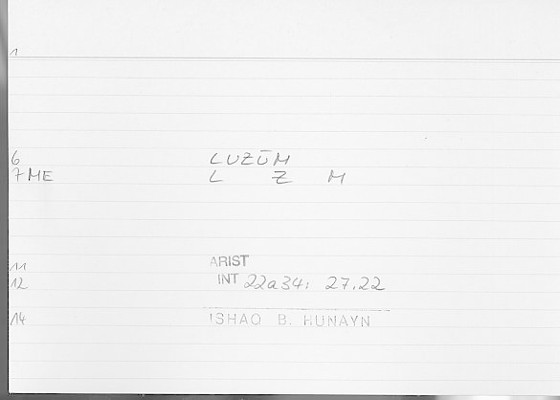 1
6 LUZŪM
7 ME L Z M
11 ARIST
12 INT 22a34; 27.22
14 ISHAQ B. HUNAYN